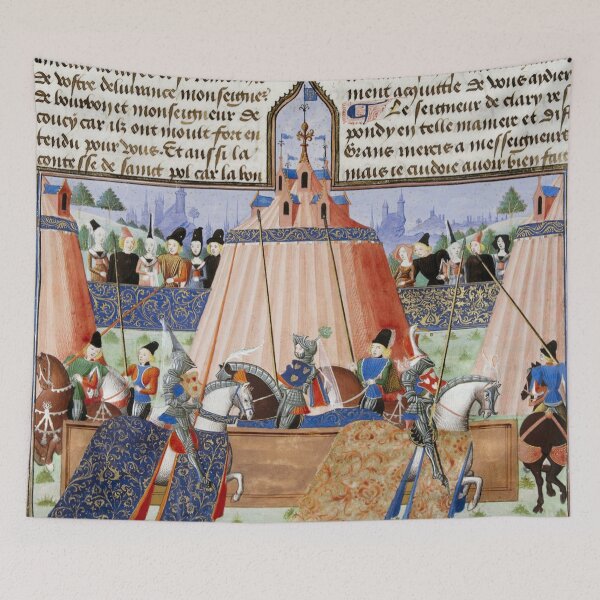 de vostre deliurance monseigneur
de bourbon et monseigneur de
coucy car ilz ont moult fort en
tendu pour vous. Et aussi la
contesse de sainct pol car la bon
ment acquittie de vous aydier
Le seigneur de clary res
pondy en telle maniere et dist
Grans mercis a messeigneurs
mais ie cuidoie auoir bien fait